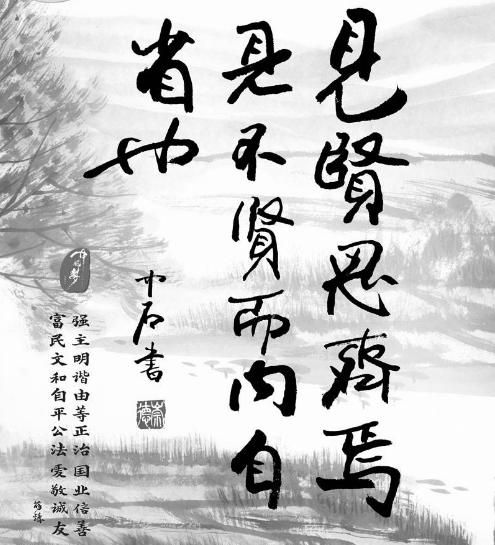 見賢思齊焉
見不賢而內自
省也
中石書
崇德
中国梦
富强
民主
文明
和谐
自由
平等
公正
法治
爱国
敬业
诚信
友善